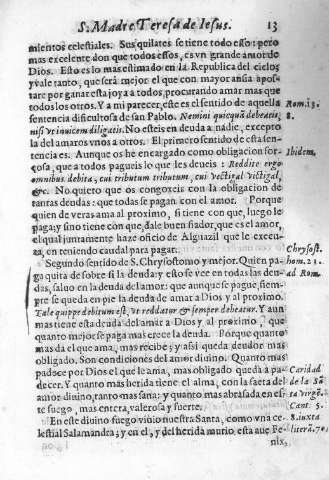 S. Madre Teresa de Iesus. 13
mientos celestiales. Sus quilates se tiene todo esso: pero
mas excelente don que todos essos, es vn grande amor de
Dios. Esto es lo mas estimado en la Republica del cielo;
y vale tanto, que será mejor el que con mayor ansia apos-
tare por ganar esta joya a todos, procurando amar mas que
todos los otros. Y a mi parecer, este es el sentido de aquella
sentencia dificultosa de san Pablo. Nemini quicquã debeatis, Rom. 13.
nisi vt inuicem diligatis. No esteis en deuda a nadie, excepto 8.
la del amaros vnos a otros. El primer sentido de esta sen-
tencia es. Aunque os he encargado como obligacion for- Ibidem.
çosa, que a todos pagueis lo que les deueis: Reddite ergo
omnibus debita, cui tributum tributum, cui vectigal vectigal,
&c. No quiero que os congoxeis con la obligacion de
tantas deudas: que todas se pagan con el amor. Porque
quien de veras ama al proximo, si tiene con que, luego le
paga; y sino tiene con que, dale buen fiador, que es el amor,
el qual juntamente haze oficio de Alguazil que le execu-
ta, en teniendo caudal para pagar. Chrysost.
Segundo sentido de S. Chrysostomo y mejor. Quien pa- hom. 21.
ga quita de sobre si la deuda: y esto se vee en todas las deu- ad Rom.
das, saluo en la deuda del amor: que aunque se pague, siem-
pre se queda en pie la deuda de amar a Dios y al proximo.
Tale quippe debitum est, vt reddatur & semper debeatur. Y aun
mas tiene esta deuda del amar a Dios y al proximo, que
quanto mejor se paga mas crece la deuda. Porque quanto
mas da el que ama, mas recibe; y assi queda deudor mas
obligado. Son condiciones del amor diuino. Quanto mas
padece por Dios el que le ama, mas obligado queda a pa- Caridad
decer. Y quanto mas herida tiene el alma, con la saeta del de la Sã
amor diuino, tanto mas sana: y quanto mas abrasada en es- ta virgẽ.
te fuego, mas entera, valerosa y fuerte. Cant. 5.
En este diuino fuego viuio nuestra Santa, como vna ce- 8. iuxta
lestial Salamandra; y en el, y del herida murio. esta aue Fe- literã. 7.
nix,